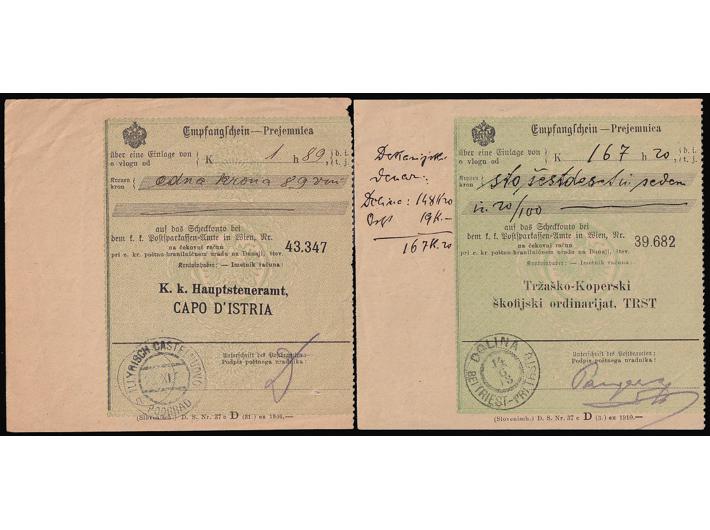 Empfangschein — Prejemnica
über eine Einlage von
o vlogu od
K 1 h 89
d. i.
t. j.
Kronen
kron
edna krona 89 vin
auf das Scheckkonto bei
dem k. k. Postsparkassen-Amte in Wien, Nr.
na čekovni račun
pri c. kr. poštno-hranilničnem uradu na Dunaji, štev.
43.347
Kontoinhaber: — Imetnik računa:
K. k. Hauptsteueramt,
CAPO D'ISTRIA
Unterschrift des Postbeamten:
Podpis poštnega uradnika:
ILLYRISCH CASTELNUOVO
PODGRAD
(Slovenisch.) D. S. Nr. 37 c D
Dolina: 148 K 20
19 K.—
167 K. 20
Empfangschein — Prejemnica
über eine Einlage von
o vlogu od
K 167 h 20
d. i.
t. j.
Kronen
kron
sto šestdeset in sedem
in 20/100
auf das Scheckkonto bei
dem k. k. Postsparkassen-Amte in Wien, Nr.
na čekovni račun
pri c. kr. poštno-hranilničnem uradu na Dunaji, štev.
39.682
Kontoinhaber: — Imetnik računa:
Tržaško-Koperski
škofijski ordinarijat, TRST
Unterschrift des Postbeamten:
Podpis poštnega uradnika:
DOLINA
BEI TRIEST
(Slovenisch.) D. S. Nr. 37 c D (3.) ex 1910.—